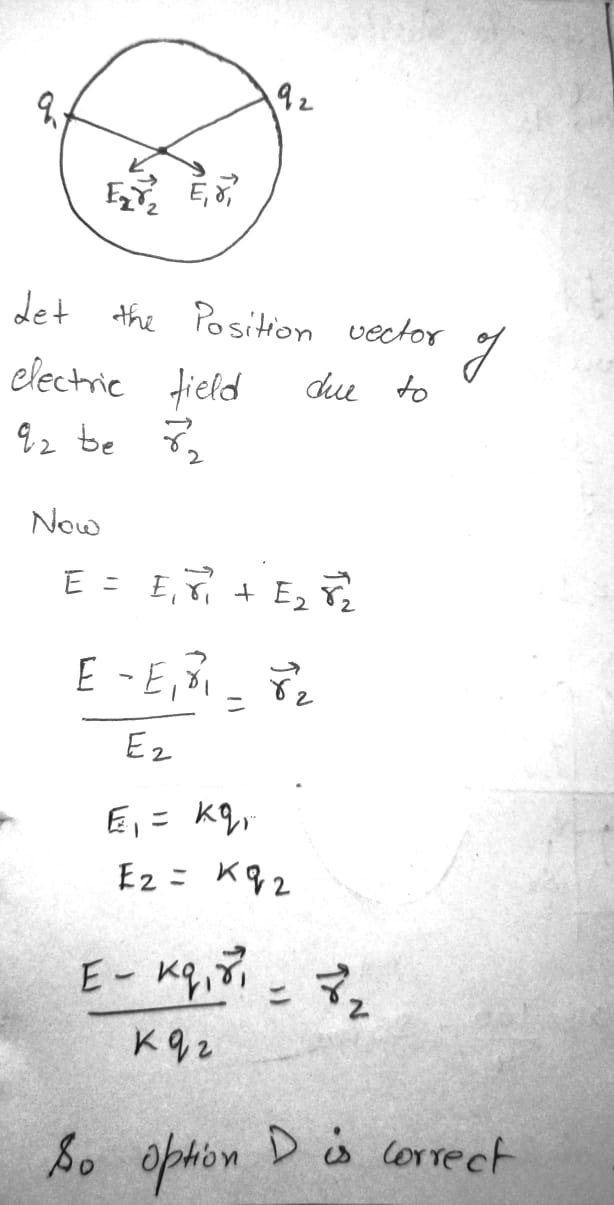 q₁ q₂
E₂r⃗₂ E₁r⃗₁
Let the Position vector of
electric field due to
q₂ be r⃗₂
Now
E = E₁r⃗₁ + E₂ r⃗₂
E - E₁r⃗₁ = r⃗₂
E₂
E₁ = Kq₁
E₂ = Kq₂
E - Kq₁r⃗₁ = r⃗₂
Kq₂
So option D is correct